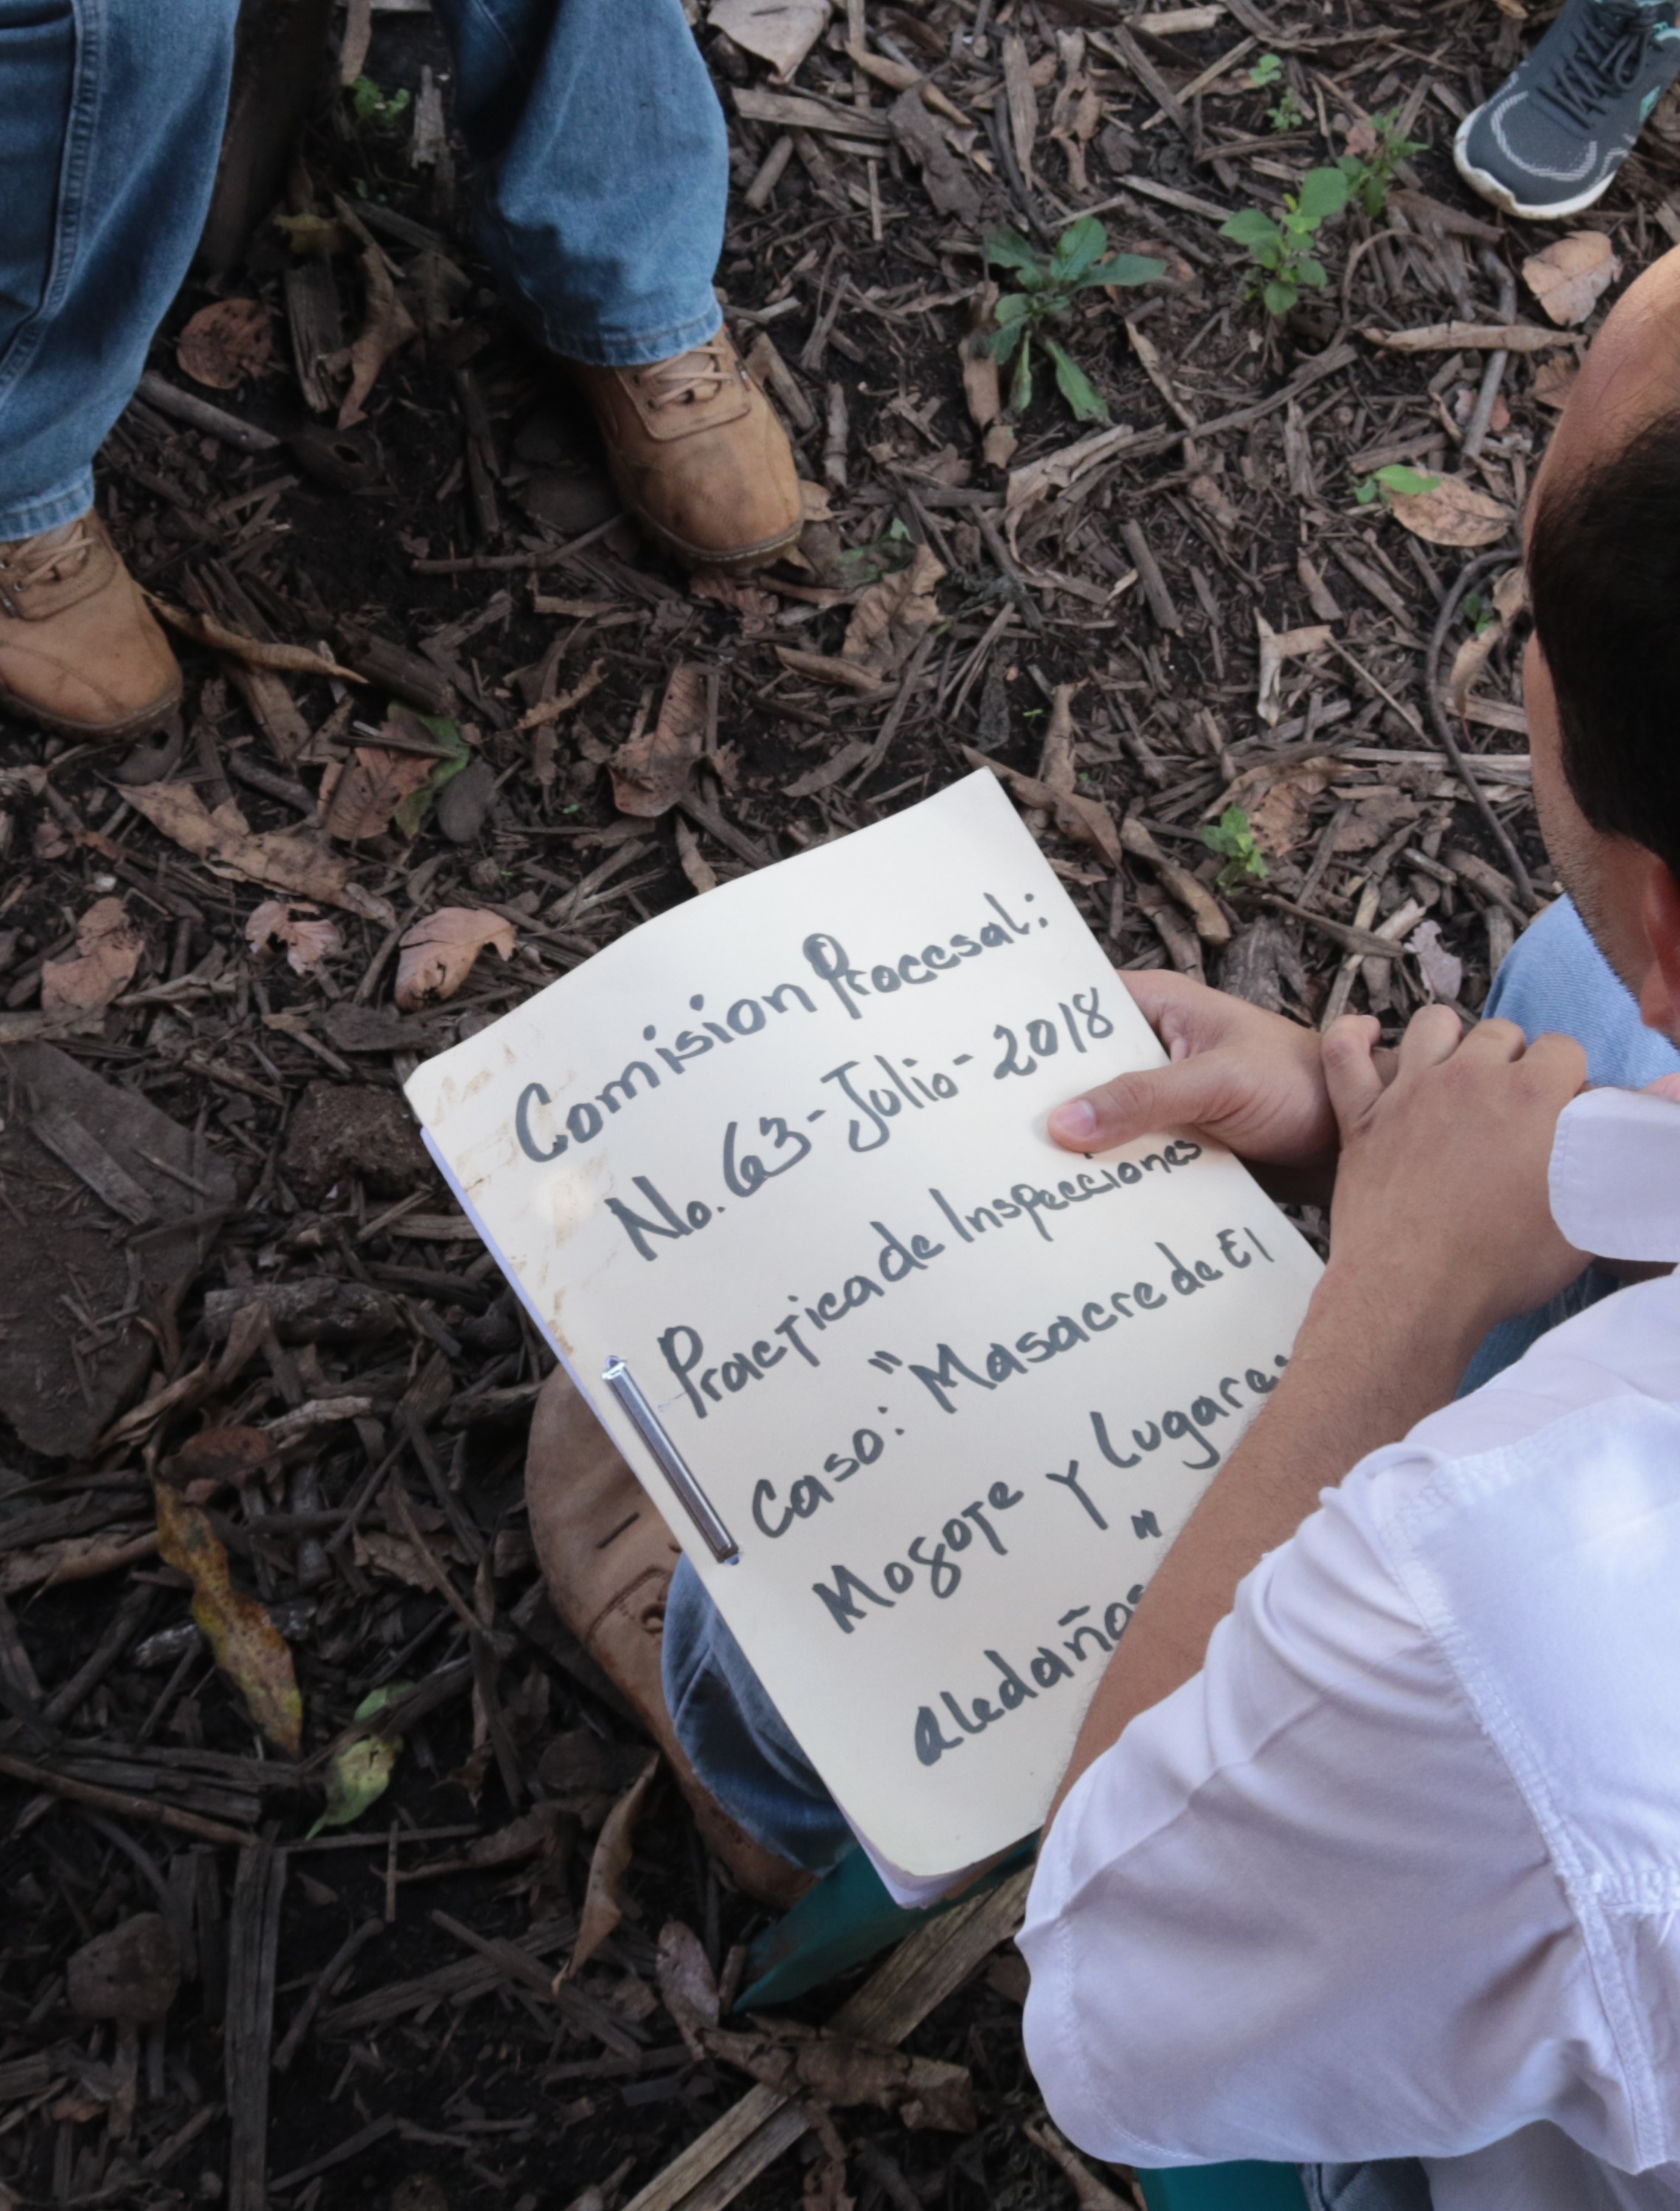 Comision Procesal:
No. 63-Julio-2018
Practica de Inspecciones
Caso: "Masacre de El
Mozote y Lugares
aledaños"